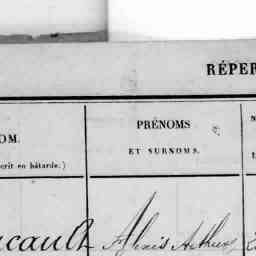 RÉPER
OM.
crit en bâtarde.)
PRÉNOMS
ET SURNOMS.
Alexis Arthur